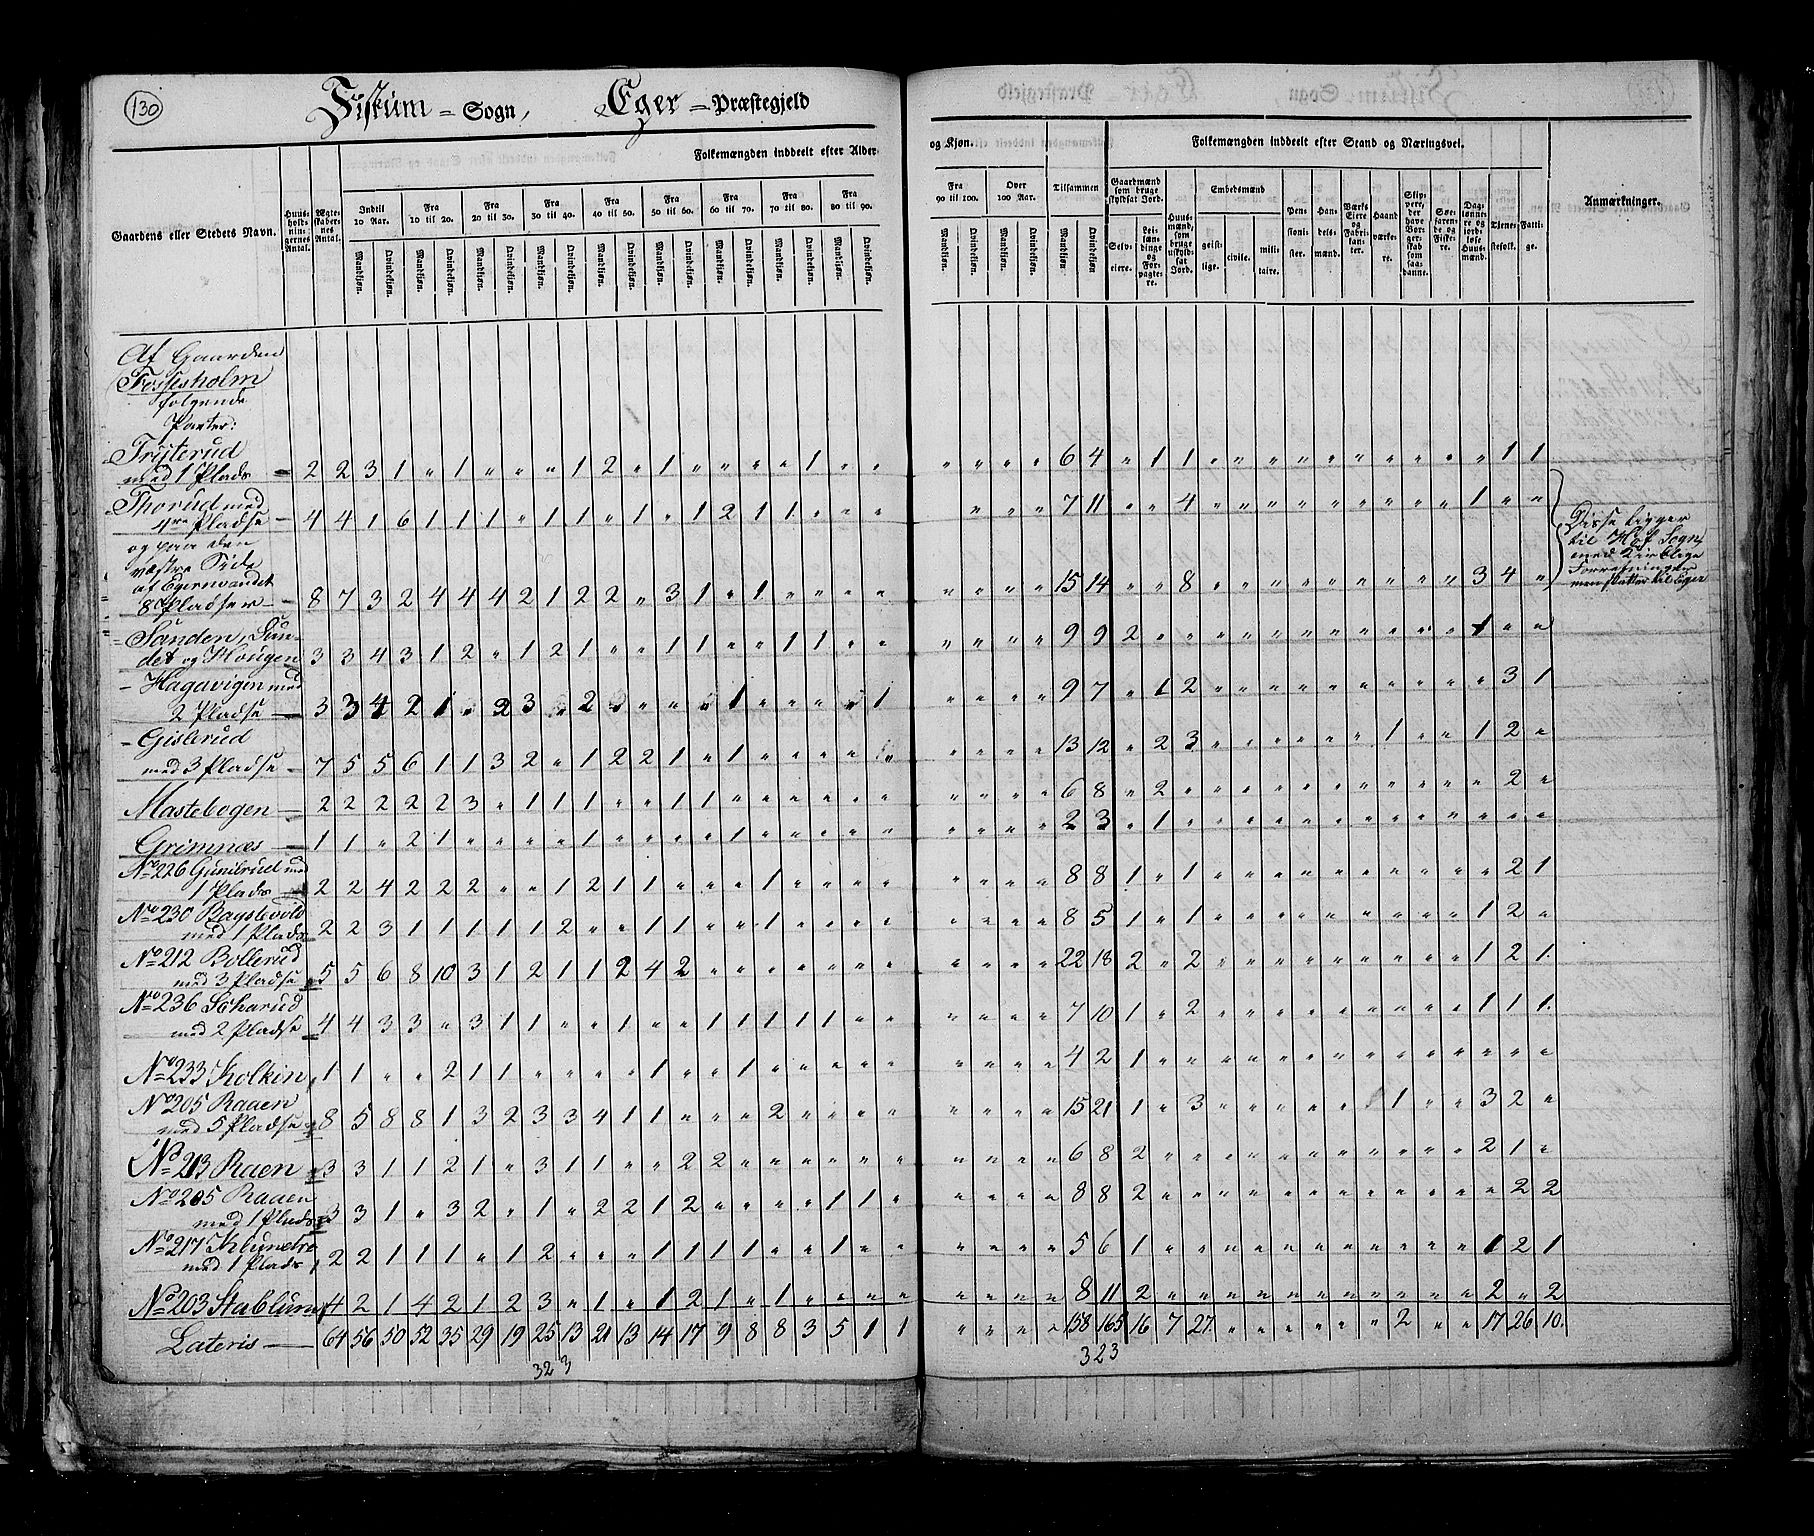 130
Fiskum = Sogn, Eger = Præstegjeld
Folkemængden inddeelt efter Alder
og Kjøn.
Folkemængden inddeelt efter Stand og Næringsvei.
Gaardens eller Stedets Navn.
Huus-holdnin-gernes Antal.
Ægte-skaber-nes Antal.
Indtil 10 Aar.
Fra 10 til 20.
Fra 20 til 30.
Fra 30 til 40.
Fra 40 til 50.
Fra 50 til 60.
Fra 60 til 70.
Fra 70 til 80.
Fra 80 til 90.
Fra 90 til 100.
Over 100 Aar.
Tilsammen
Mandkjøn. Qvindekjøn.
Gaardmænd som bruge skyldsat Jord.
Selv-eiere.
Lei-læn-dinge og For-pagte-re.
Huus-mænd, som bruge uskyld-sat Jord.
Embedsmænd
geist-lige.
civile.
mili-taire.
Pen-sioni-ster.
Han-dels-mænd.
Værks Eiere og Fabri-kanter.
Haand værke-re.
Dag-lønne-re og jord-løse Huus-mænd.
Tjene-stefolk.
Fatti-ge.
Anmærkninger.
Af Gaarden
Fossesholm
følgende
Parter:
Trysterud
med 1 Plads 2 2 3 1 " 1 " " " 1 2 " 1 " " " " 1 " " " " " " 6 4 " 1 1 " " " " " " " " " " 1 1
Thorud med
4re Pladse 4 4 1 6 1 1 1 " 1 1 " 1 " 1 2 1 1 " " " " " " 7 11 " " 4 " " " " " " " " " 1 " "
og paa den
væstre Side
af Egernvandet
8 Pladser 8 7 3 2 4 4 4 2 1 2 2 " 3 1 " 1 " " " " " " " " 15 14 " " 8 " " " " " " " " " 3 4 "
Disse ligger
til Hof Sogn
med Kirkelige
Forretninger
men skatter til Eger
Sanden, Sun-
det og Hougen 3 3 4 3 1 2 " 1 2 1 " " 1 1 " " 1 1 " " " " " " 9 9 2 " " " " " " " " " " " 1 " "
Hagavigen med
2 Pladse 3 3 4 2 1 " 2 3 " 2 " " " " 1 " " " " 1 " " " " 9 7 " 1 2 " " " " " " " " " " 3 1
Gislerud
med 3 Pladse 7 5 5 6 1 1 3 2 " 1 2 2 1 " 1 " " " " " " " " 13 12 " 2 3 " " " " " " 1 " " 1 2 "
Mastebogen 2 2 2 2 2 3 " 1 1 1 " " 1 1 " " " " " " " " " " 6 8 " 2 " " " " " " " " " " " 2 "
Grimnæs 1 1 " 2 1 " " " " 1 " " " " 1 " " " " " " " " " 2 3 " 1 " " " " " " " " " " " " "
No 226 Gunilrud med
1 Plads 2 2 4 2 2 2 " " 1 2 1 1 " " " 1 " " " " " " " " 8 8 1 " 1 " " " " " " " " " " 2 1
No 230 Bagstevold
med 1 Plads 2 2 3 1 1 1 1 1 2 " " 1 1 " " 1 " " " " " " " " 8 5 1 " 1 " " " " " " " " " 1 2 "
No 212 Bollerud
med 3 Pladse 5 5 6 8 10 3 1 2 1 1 2 4 2 " " " " " " " " " " " 22 18 2 " 2 " " " " " " " " " 1 2 1
No 236 Scharud
med 2 Pladse 4 4 3 3 " 3 1 1 " " 1 " 1 1 1 1 1 " " " " " " 7 10 1 " 2 " " " " " " " " " 1 1 1
No 233 Kolkin 1 1 " " 2 1 1 " " " " 1 " " 1 " " " " " " " " 4 2 1 " " " " " " " " " " " " " "
No 205 Raaen
med 5 Pladse 8 5 8 8 1 3 2 3 3 4 1 1 " " " 2 " " " " " " " " 15 21 1 " 3 " " " " " " 1 " " 3 2 "
No 213 Raen 3 3 1 1 2 1 " 3 1 1 " " 2 2 " " " " " " " " " " 6 8 2 " " " " " " " " " " " 2 1 "
No 205 Raaen
med 1 Plads 3 3 1 " 3 2 " 1 " 2 2 1 2 " " " " 1 1 " " " " " 8 8 2 " " " " " " " " " " " " 2 2
No 217 Klunetre
med 1 Plads 2 2 1 1 1 " 1 2 " " " 1 1 1 1 " " 1 " " " " " " 5 6 1 " " " " " " " " " " " 1 2 1
No 203 Stablum 4 2 1 4 2 1 2 3 " 1 " 1 2 1 " 1 " " " " " " " " 8 11 2 " " " " " " " " " " " 2 " 2
Lateris 64 56 50 52 35 29 19 25 13 21 13 14 17 9 8 8 3 5 1 1 " " " " 158 165 16 7 27 " " " " " " 2 " " 17 26 10.
323
323